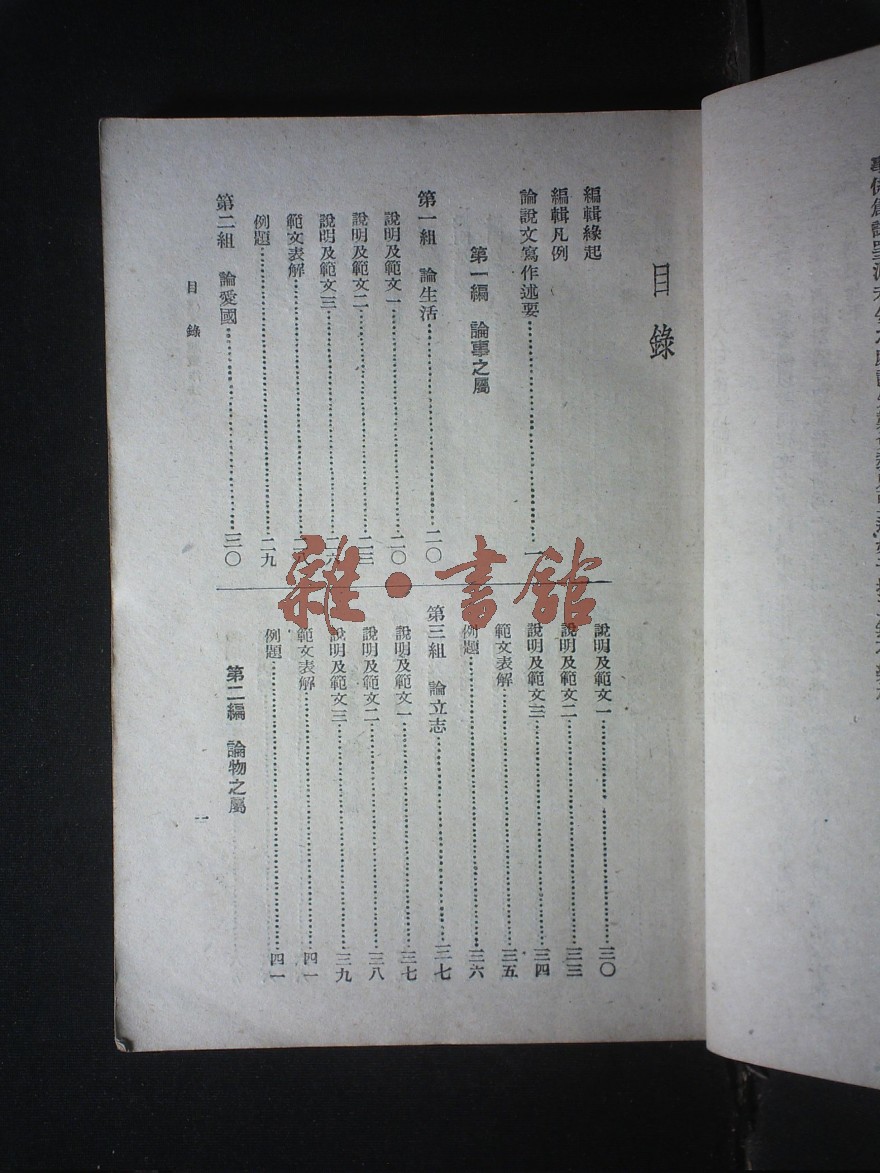 目錄
編輯緣起
編輯凡例
論說文寫作述要……一
第一編 論事之屬
第一組 論生活……二〇
說明及範文一……二〇
說明及範文二……二三
說明及範文三……二六
範文表解……二八
例題……二九
第二組 論愛國……三〇
說明及範文一……三〇
說明及範文二……三三
說明及範文三……三四
範文表解……三五
例題……三六
第三組 論立志……三七
說明及範文一……三七
說明及範文二……三八
說明及範文三……三九
範文表解……四一
例題……四一
第二編 論物之屬
目錄
一
雜·書館